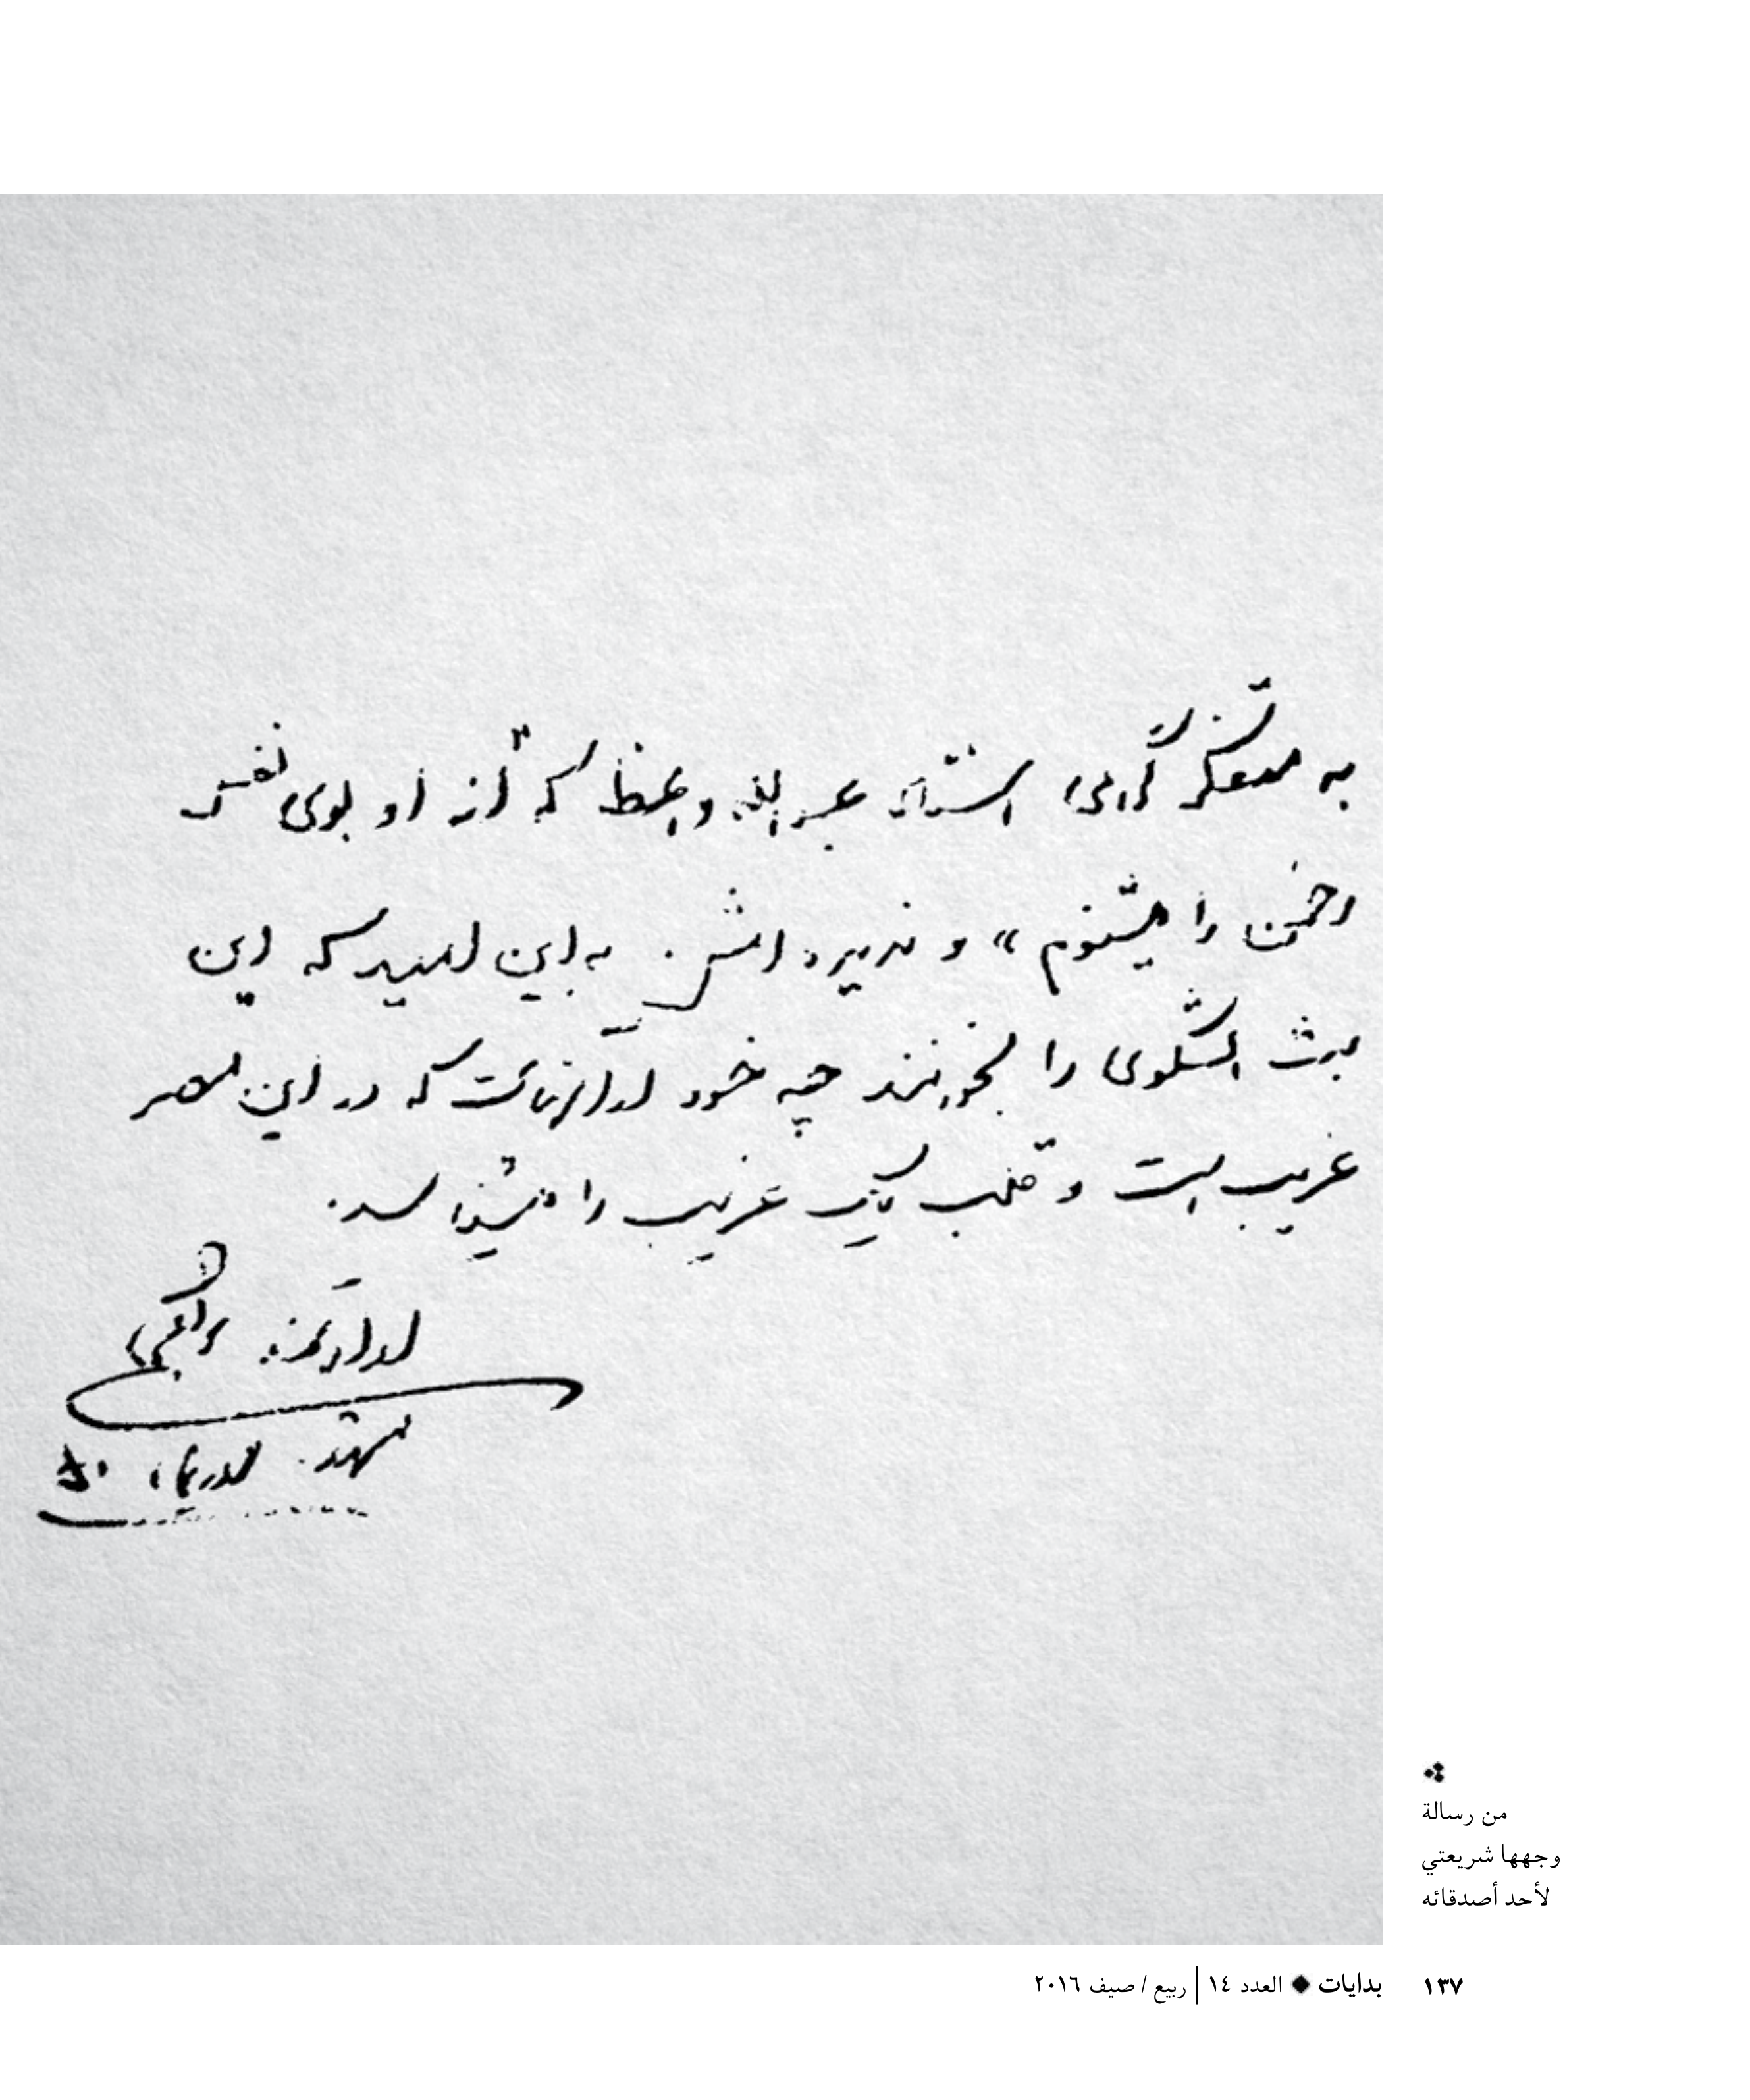 به متفکر گرامی استاد عبدالله واعظ که "از او بوی نفس
رحمن را میشنوم" و ندیده‌امش. به این امید که این
بث الشکوی را بخوانند چه خود از آنهاست که در این عصر
غریب است و قلب یک غریب را میشناسد.
ارادتمند: علی
مشهد.
من رسالة
وجهها شريعتي
لأحد أصدقائه
١٣٧ بدايات ◆ العدد ١٤ | ربيع / صيف ٢٠١٦